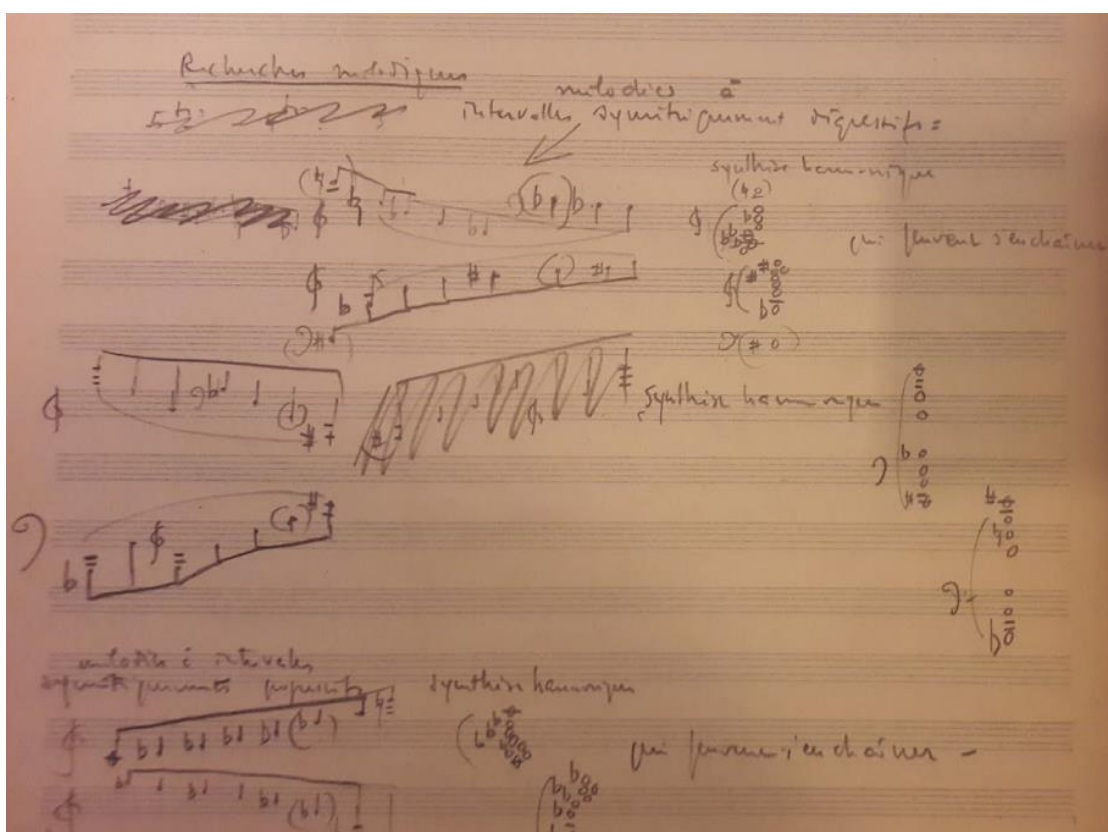 Recherches mélodiques
mélodies à
intervalles symétriquement digressifs =
synthèse harmonique
qui peuvent s'enchaîner
synthèse harmonique
mélodies à intervalles
symétriquement
synthèse harmonique
qui peuvent s'enchaîner -